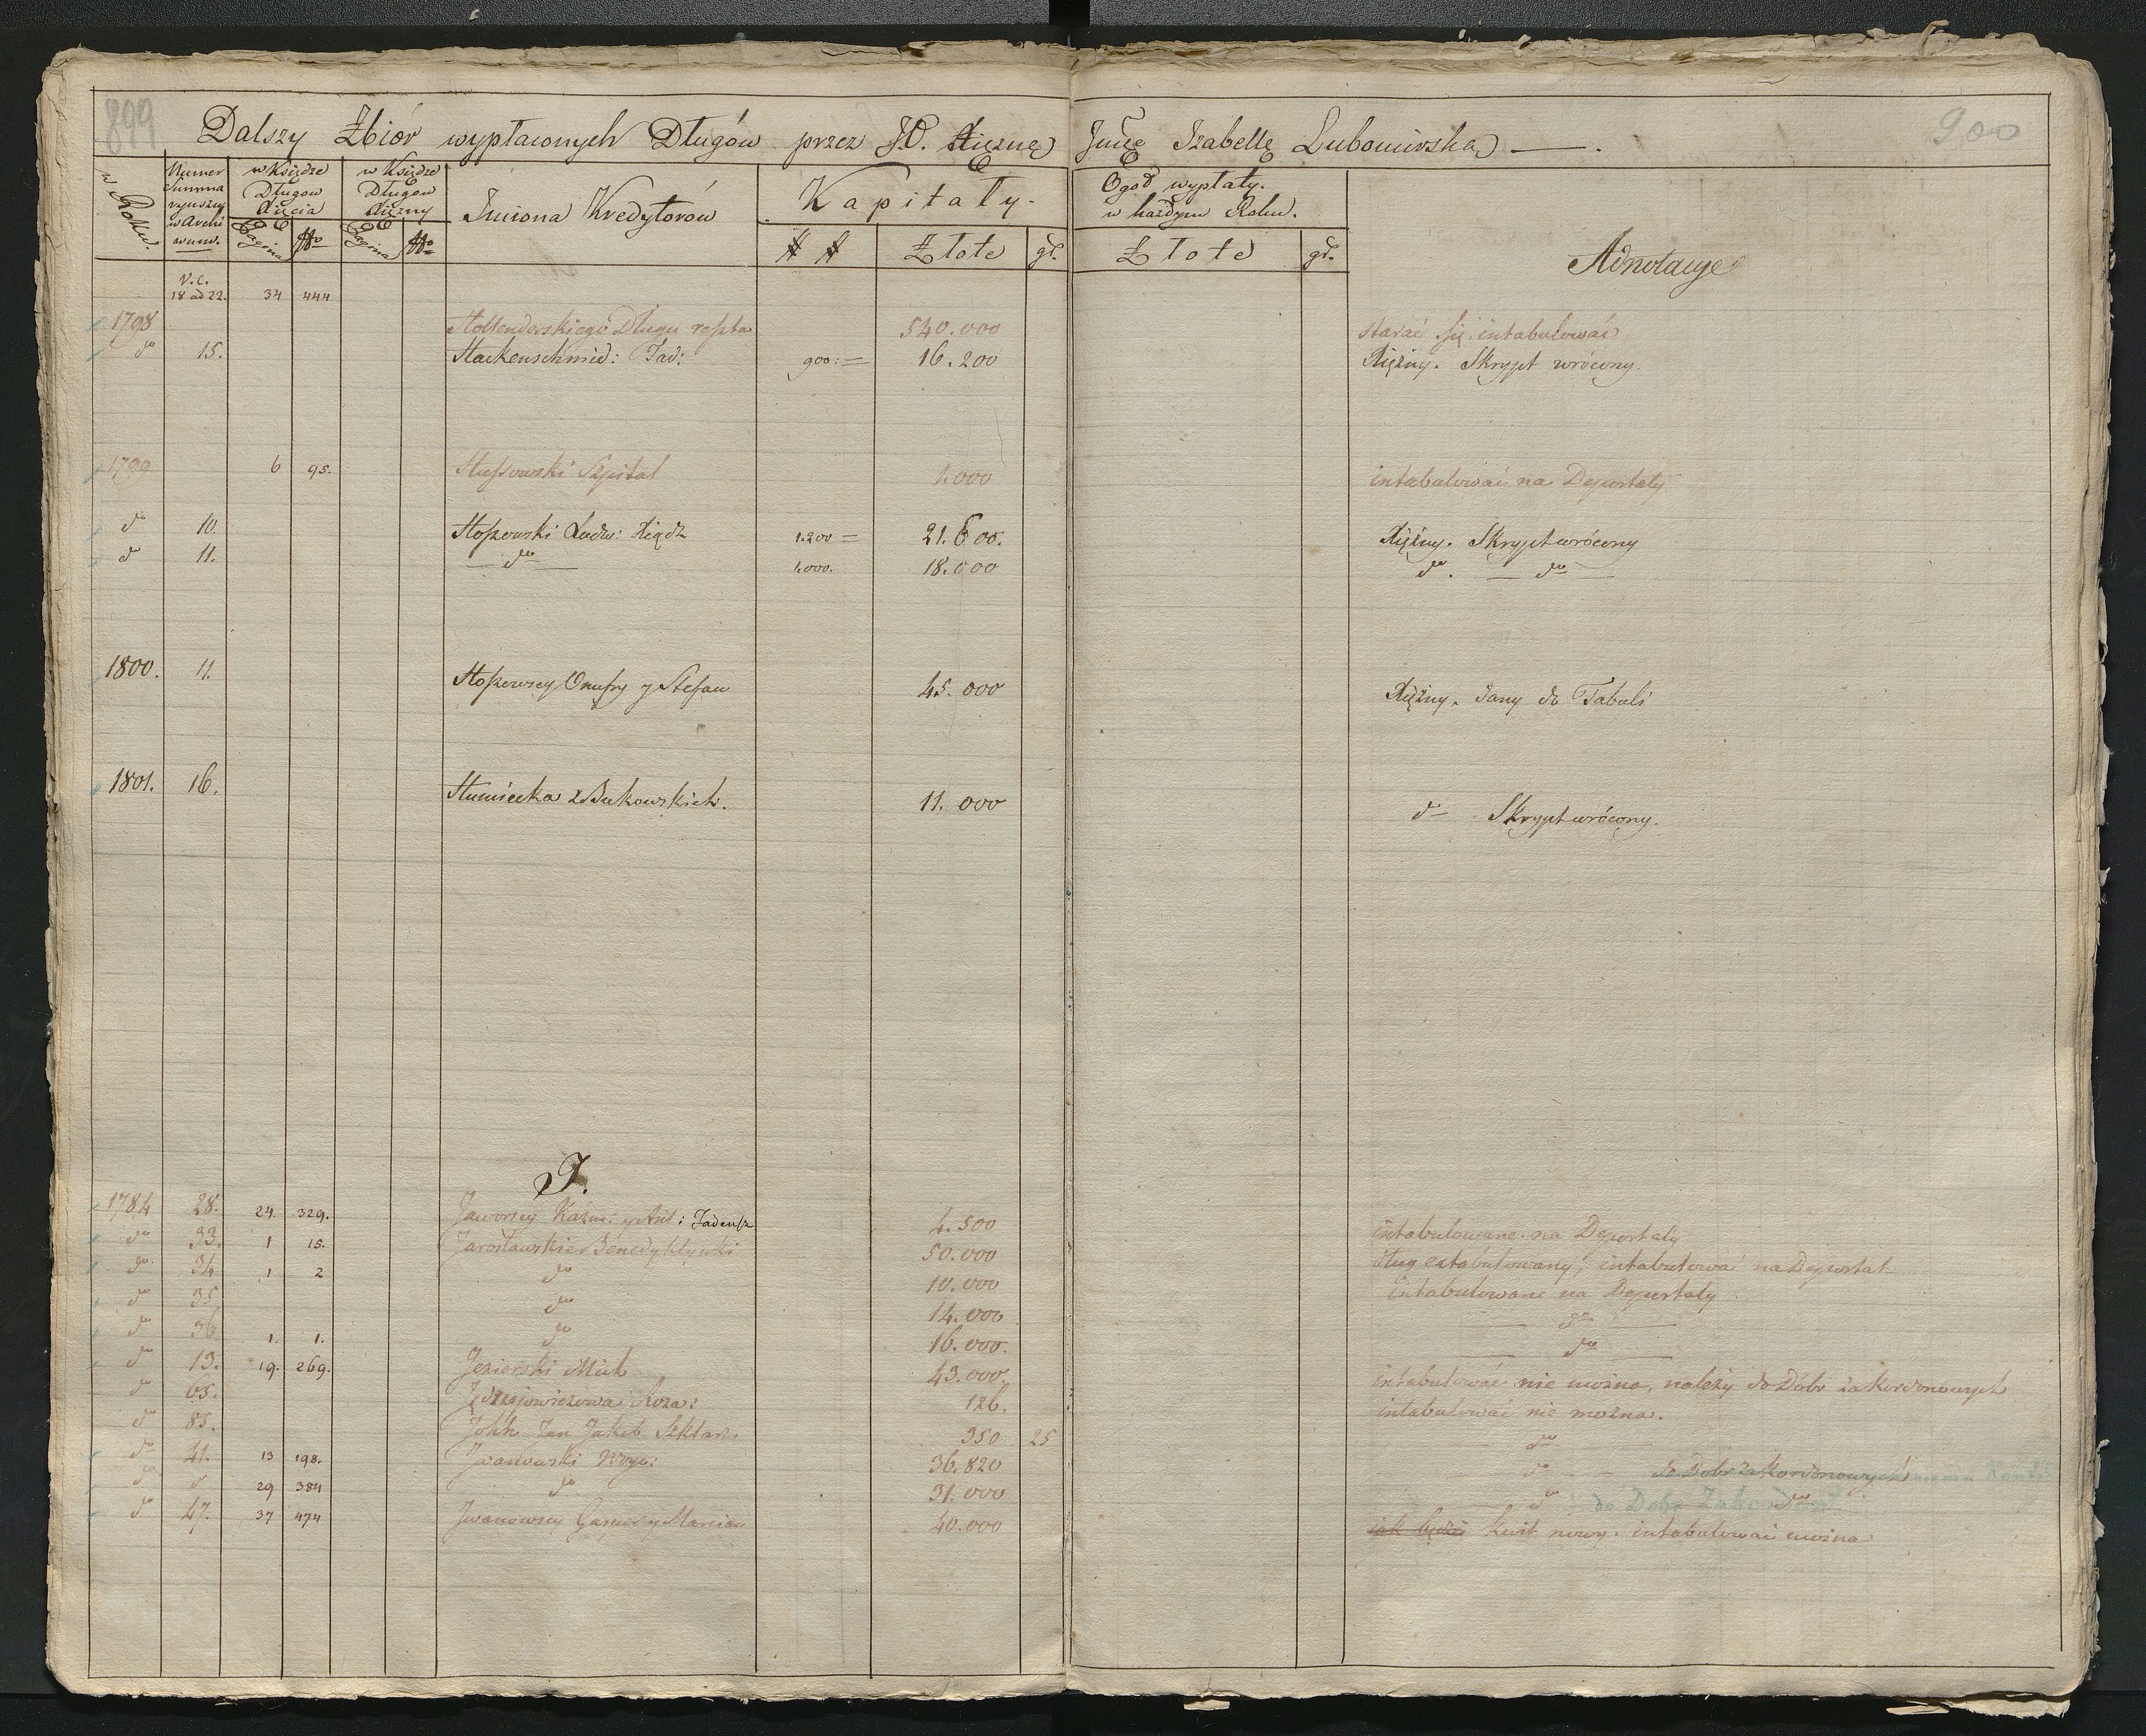 899
900
Dalszy Zbiór wypłaconych Długów przez J.O. Xiężnę Jmcę Izabellę Lubomirską
w Roku.
Numer
Summa
w Archi
wum.
w Księdze
Długow
Xięcia
w Księdze
Długow
Xiężny
Pagina
No
Pagina
No
Imiona Kredytorów
Kapitały.
## Złote gr.
Ogół wypłaty.
w każdym Roku.
Złote gr.
Adnotacye
V.C.
18 ad 22. 34 444
1798 Hollenderskiego Długu reszta 540.000 starać się intabulować
do 15. Hackenschmid: Tad: 900:= 16.200 Xiężny. Skrypt wrócony.
1799 6 95. Hussowski Szpital 1.000 intabulować na Deportaty
do 10. Hoszowski Ludw: Xiądz 1.200= 21.600. Xiężny. Skrypt wrócony
do 11. do 1.000. 18.000 do. do
1800. 11. Hoszowscy Onufry y Stefan 45.000 Xiężny. dany do Tabuli
1801. 16. Humiecka z Bukowskich. 11.000 do Skrypt wrócony.
J.
1784 28. 24. 329. Jaworscy Kazm: y Ant: Tadeusz 4.500 intabulowane na Deportaty
do 33. 1 15. Jarosławskie Benedyktynki 50.000 dług extabulowany, intabulować na Deportat
do 34 1 2 do 10.000 intabulowane na Deportaty
do 35 do 14.000 do
do 36 1. 1. do 16.000. do
do 13. 19. 269. Jezierski Mich 43.000. intabulować nie można, należy do Dóbr zakordonowych
do 65. Jędrzejowiczowa Roza: 126. intabulować nie można.
do 85. John Jan Jakub Szklarz 350 25 do
do 41. 13 198. Jwanowski Wryn: 36.820 do do Dóbr zakordonowych
do d 29 384 do 31.000 do do Dobr Zakordon do
do 47. 37 474 Jwanowscy Gasper y Marcian 40.000 jak będzie kwit nowy intabulować można